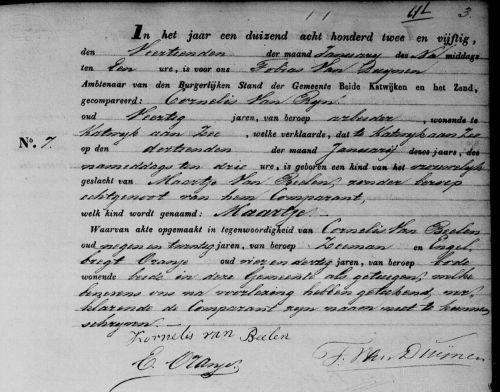 41 3.
In het jaar een duizend acht honderd twee en vijftig,
den Veertienden der maand January des Na middags
ten Een ure, is voor ons Tobias Van Duynen
Ambtenaar van den Burgerlijken Stand der Gemeente Beide Katwijken en het Zand,
gecompareerd: Cornelis Van Ryn
oud Veertig jaren, van beroep arbeider, wonende te
Katwyk aan Zee, welke verklaarde, dat te Katwyk aan Zee
No. 7. op den dertienden der maand January dezes jaars, des
nameddags ten drie ure, is geboren een kind van het vrouwelyk
geslacht van Maartje Van Beelen, zonder beroep
echtgenoot van hem Comparant,
welk kind wordt genaamd: Maartje.
Waarvan akte opgemaakt in tegenwoordigheid van Cornelis Van Beelen
oud negen en twintig jaren, van beroep Zeeman en Engel-
bregt Oranje oud vier en dertig jaren, van beroep bode
wonende beide in deze Gemeente als getuigen, welke
benevens ons na voorlezing hebben geteekend, ver-
klarende de Comparant zyn naam niet te kunnen
schryven.
Kornelis van Beelen
E. Oranje. T. Van Duijnen